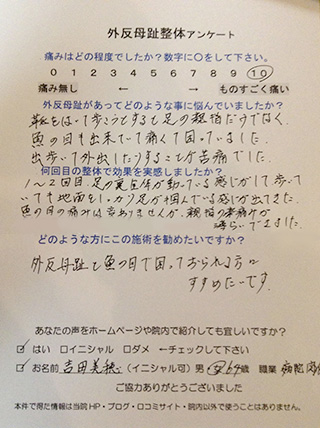 外反母趾整体アンケート
痛みはどの程度でしたか?数字に○をして下さい。
0 1 2 3 4 5 6 7 8 9 10
痛み無し ← → ものすごく痛い
外反母趾があってどのような事に悩んでいましたか?
靴をはいて歩こうとすると足の親指だけでなく、
魚の目も出来ていて痛くて困っていました。
出歩いて外出したりすることが苦痛でした。
何回目の整体で効果を実感しましたか?
1～2回目、足の裏全体が動いている感じがして歩いて
いても地面をしっかり足が掴んでいる感じが出てきた。
魚の目の痛みは変わりませんが、親指の痛みが
和らいできました。
どのような方にこの施術を勧めたいですか?
外反母趾と魚の目で困っておられる方に
すすめたいです。
あなたの声をホームページや院内で紹介しても宜しいですか?
☑ はい ロイニシャル ロダメ ←チェックして下さい
☑ お名前 吉田美穂 (イニシャル可) 男 女 64歳 職業 病院
ご協力ありがとうございました
本件で得た情報は当院HP・ブログ・口コミサイト・院内以外で使うことはありません。